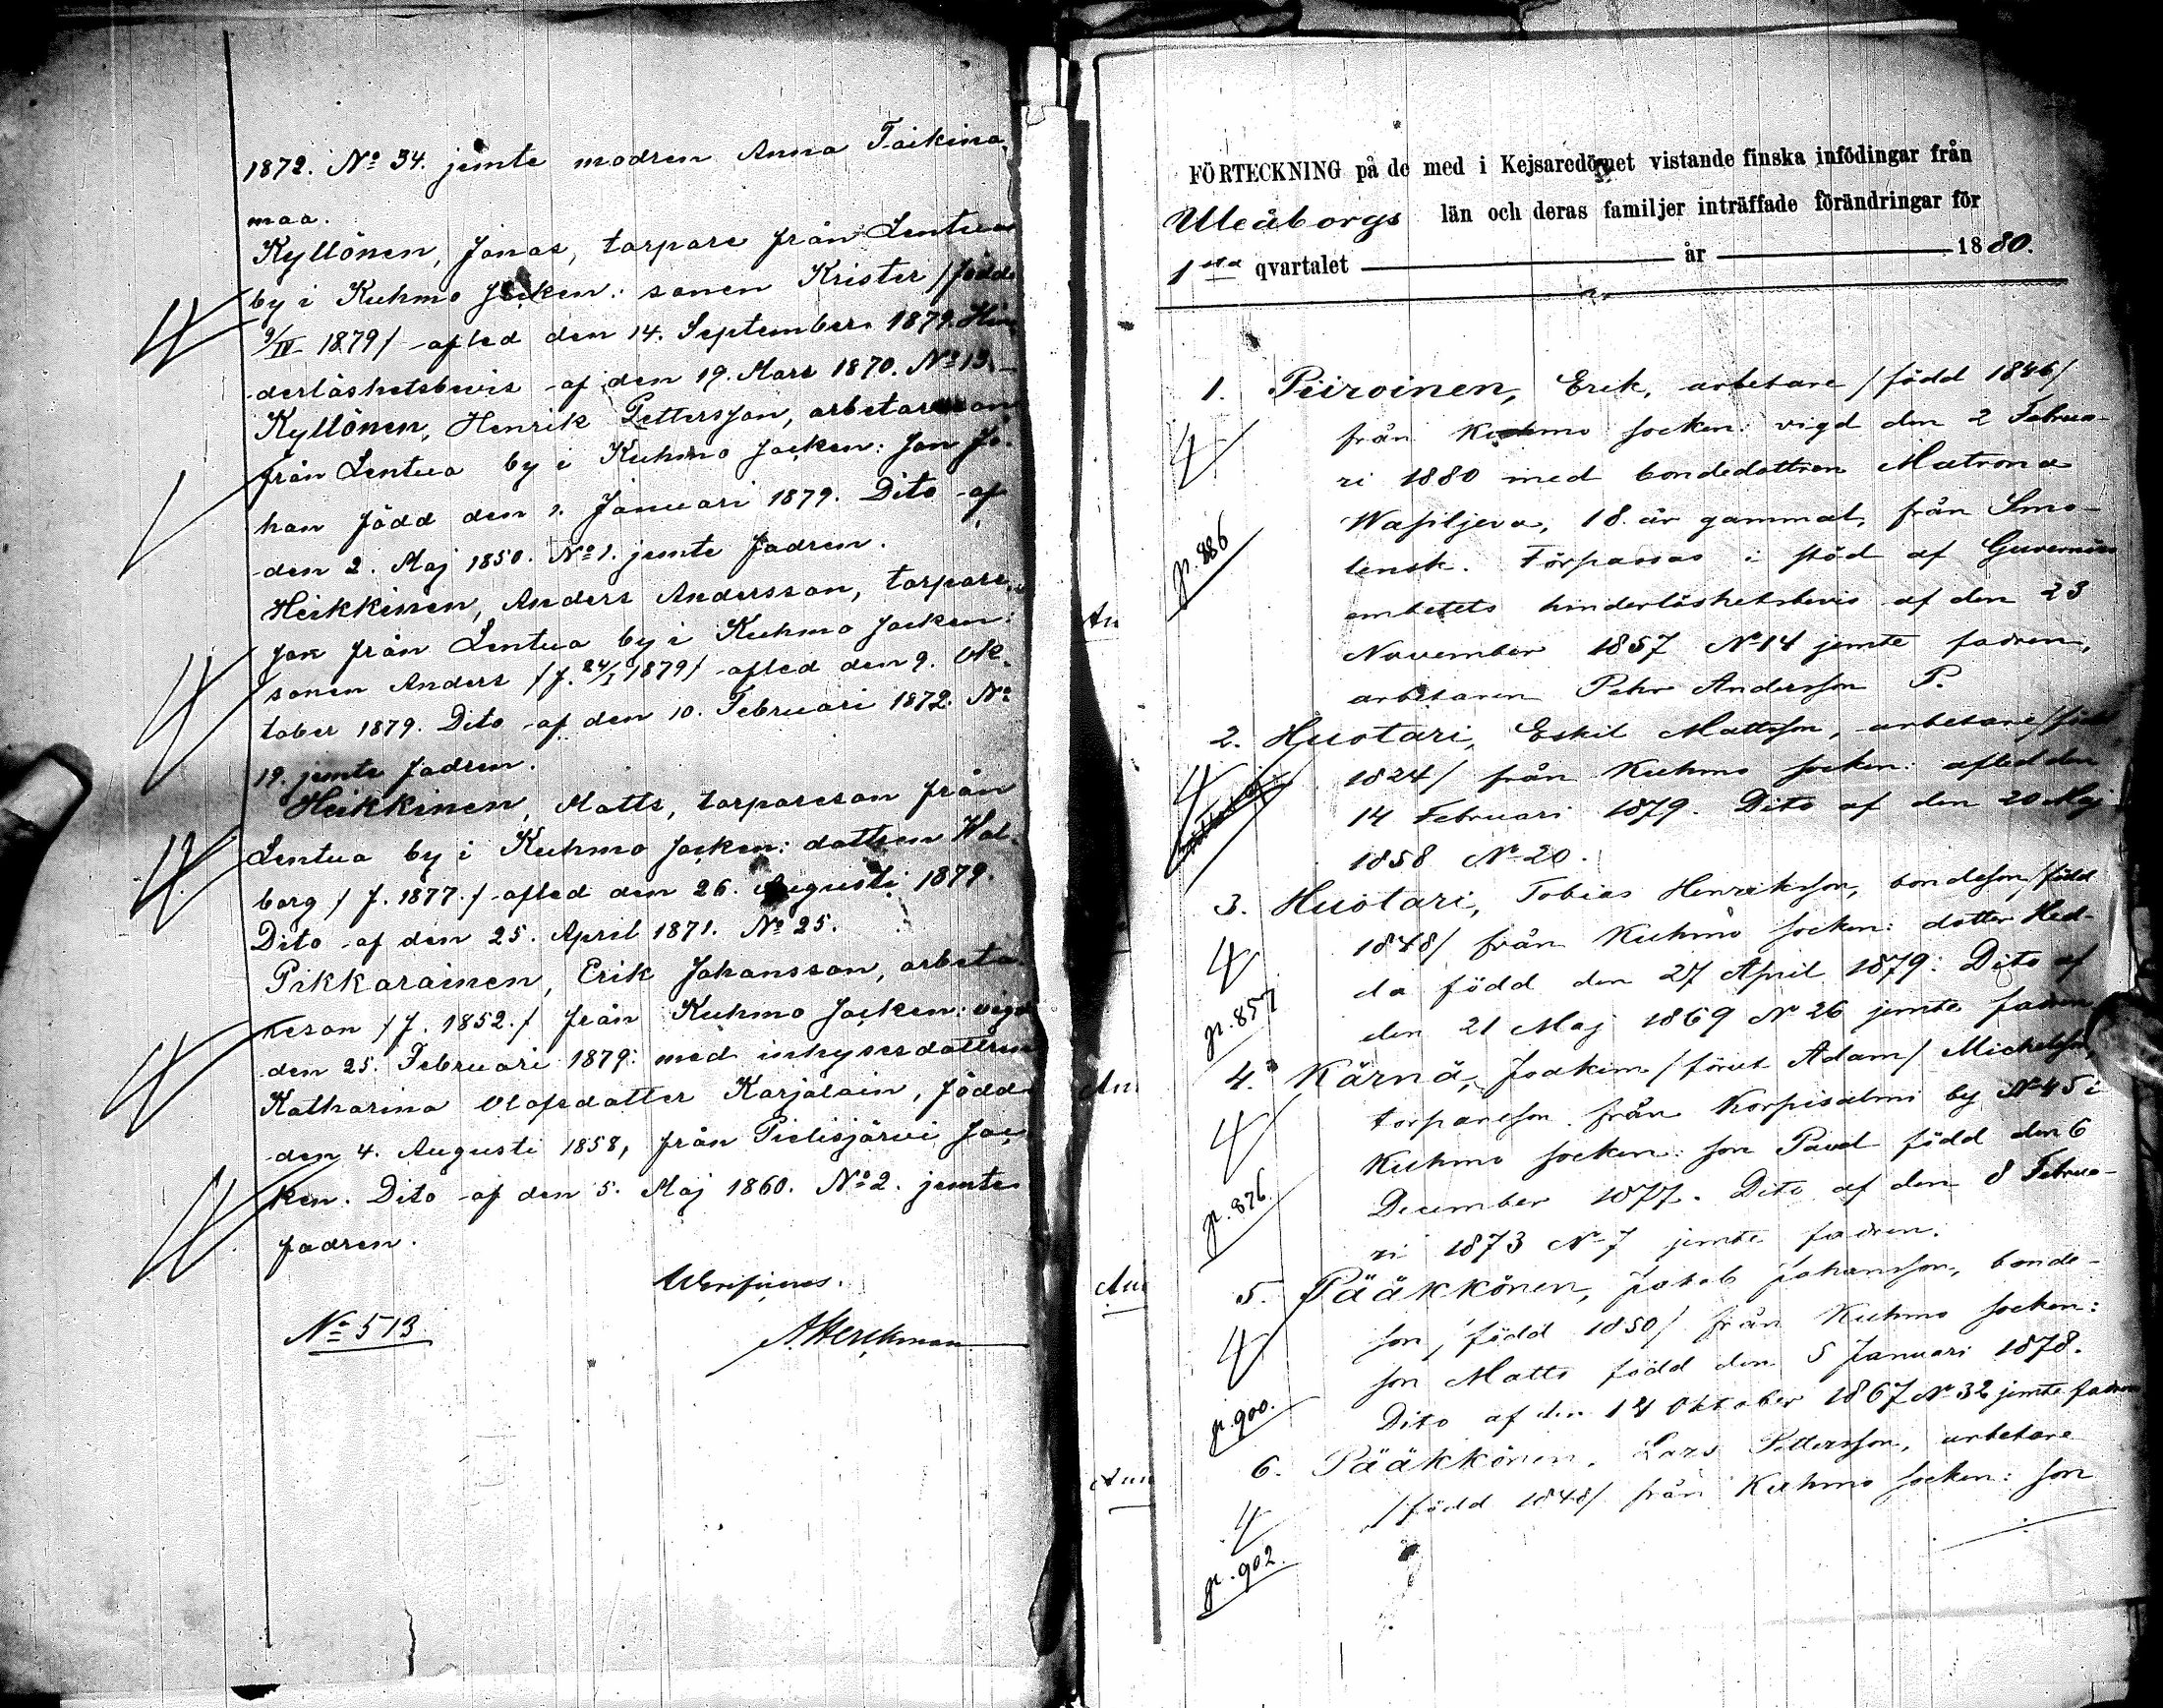 1872. No 34. jemte modren Anna Taikina-
maa.
Kyllönen, Jonas, torpare från Lentua
by i Kuhmo socken: sonen Krister /född
9/IV 1879/ afled den 14. September 1879. Hin-
derlöshetsbevis af den 19. Mars 1870. No 13.
Kyllönen, Henrik Pettersson, arbetareson
från Lentua by i Kuhmo socken: son Jo-
han född den 1. Januari 1879. Dito af
den 2. Maj 1850. No 1. jemte fadren.
Heikkinen, Anders Andersson, torpare-
son från Lentua by i Kuhmo socken:
sonen Anders /f. 24/I 1879/ afled den 9. Ok-
tober 1879. Dito af den 10. Februari 1872. No
19. jemte fadren.
Heikkinen, Matts, torpareson från
Lentua by i Kuhmo socken: dottren Wal-
borg /f. 1877./ afled den 26. Augusti 1879.
Dito af den 25. April 1871. No 25.
Pikkarainen, Erik Johansson, arbeta-
reson /f. 1852./ från Kuhmo socken: vigd
den 25. Februari 1879: med inhysesdottren
Katharina Olofsdotter Karjalain, född
den 4. Augusti 1858, från Pielisjärvi soc-
ken. Dito af den 5. Maj 1860. No 2. jemte
fadren.
No 513
FÖRTECKNING på de med i Kejsaredömet vistande finska infödingar från
Uleåborgs län och deras familjer inträffade förändringar för
1sta qvartalet år 1880.
1. Piiroinen, Erik, arbetare /född 1846/
från Kuhmo socken: vigd den 2 Februa-
ri 1880 med bondedottren Matrona
Wasiljeva, 18 år gammal, från Smo-
lensk. Förpassas i stöd af Guvernörs
embetets hinderlöshetsbevis af den 23
November 1857 No 14 jemte fadren,
arbetaren Pehr Andersson P.
p. 886
2. Huotari, Eskil Mattsson, arbetare /född
1824/ från Kuhmo socken: afled den
14 Februari 1879. Dito af den 20 Maj
1858 No 20.
3. Huotari, Tobias Henriksson, bondeson /född
1848/ från Kuhmo socken: dotter Hed-
da född den 27 April 1879: Dito af
den 21 Maj 1869 No 26 jemte fadren
p. 857
4. Kärnä, Joakim /förut Adam/ Michelsson,
torpareson från Korpisalmi by No 45 i
Kuhmo socken: son Paul född den 6
December 1877. Dito af den 8 Februa-
ri 1873 No 7 jemte fadren.
p. 876.
5. Pääkkönen, Jakob Johansson, bonde-
son, född 1850/ från Kuhmo socken:
son Matts född den 5 Januari 1878.
Dito af den 14 Oktober 1867 No 32 jemte fadren
p. 900.
6. Pääkkönen, Lars Pettersson, arbetare
/född 1848/ från Kuhmo socken: son
p. 902.